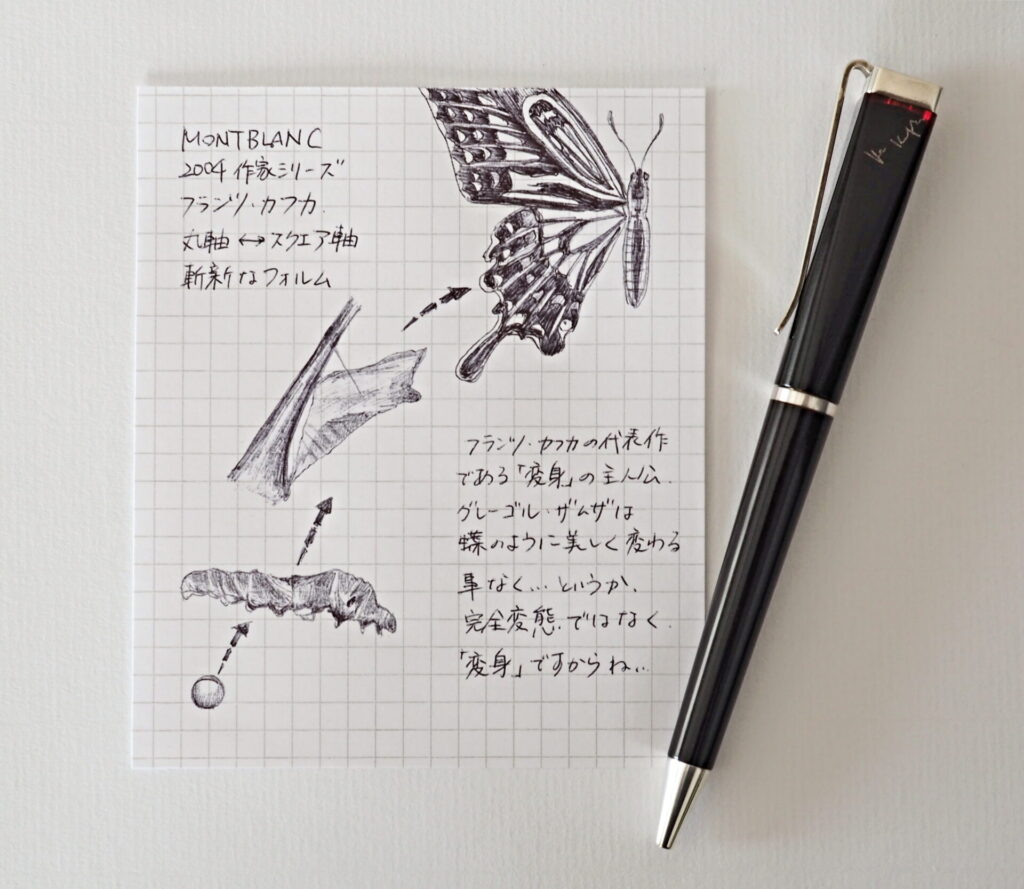 MONTBLANC
2004 作家シリーズ
フランツ・カフカ.
丸軸 ↔ スクエア軸
斬新なフォルム
フランツ・カフカの代表作
である「変身」の主人公.
グレーゴル・ザムザは
蝶のように美しく変わる
事なく...というか.
完全変態ではなく.
「変身」ですからね...